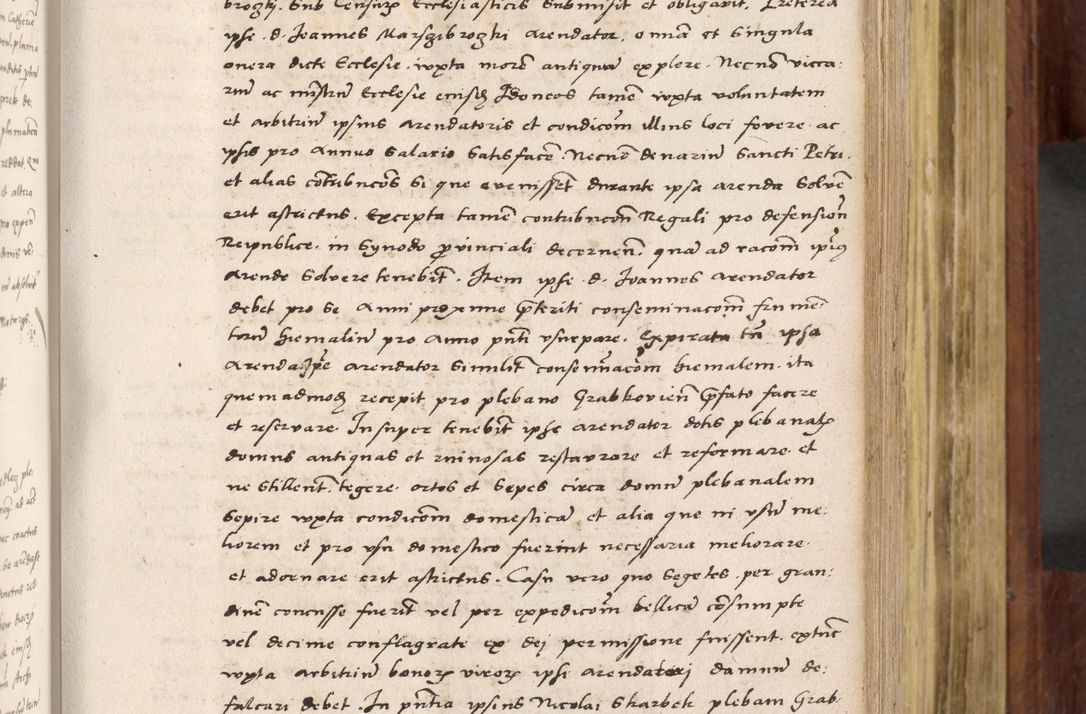 brozki. Sub Censurꝫ Ecclesiasticis Submisit et obligavit. Preterea
ipse .d. Joannes Marszibrozki arendator, omnia et Singula
onera dicte Ecclesie. iuxta more͂ antiqua͂ explere. Necno͂ vicca:
riu͂ ac mi͂stru͂ Ecclesie Idoneos tame͂ iuxta voluntatem
et arbitriu͂ ipsius arendatoris et condico͂m illius loci fovere. ac
ipsis pro Annuo Salario Satisface͂. Necno͂ denariu͂ Sancti Petri.
et alias co͂tribuco͂s Si que evenisse͂t durante ipsa arenda Solve͂
erit astrictus. Excepta tame͂ contribuco͂n Regali pro defension͂
Reipublice. in Synodo provinciali decernen͂. qua͂ ad raco͂m ipsius
Arende Solvere tenebit͂. Item ipse .d. Joannes arendator
debet pro Se Anni proxime p͂teriti conseminaco͂m frume͂:
toru͂ hiemaliu͂ pro Anno pn͂ti usurpare. Expirata tn͂ ipsa
Arenda. Ip͂e arendator Similit͂ conse͂minaco͂m hiemalem. ita
quemadmodꝫ recepit pro plebano Grabkovien͂ p͂fato facere
et reservare. Insuper tenebit͂ ipse arendator dotis plebanalꝫ
domus antiquas et ruinosas restavrare et reformare. et
ne Stillent͂. tegere. ortos et Sepes circa domu͂ plebanalem
Sepire iuxta condico͂m domestica͂ et alia que in usu͂ me:
liorem et pro usu domestico fuerint necessaria meliorare.
et adornare erit astrictus. Casu vero quo Segetes. per gran:
dine͂ concusse fueri͂t vel per expedico͂m bellica͂ co͂sumpte
vel decime conflagrate ex dei permissione fuissent. extu͂c
iuxta arbitriu͂ bonorꝫ virorꝫ ipsi arendatori damnu͂ de:
falcari debet. In pn͂tia ipsius Nicolai Skarbek plebani Grab.